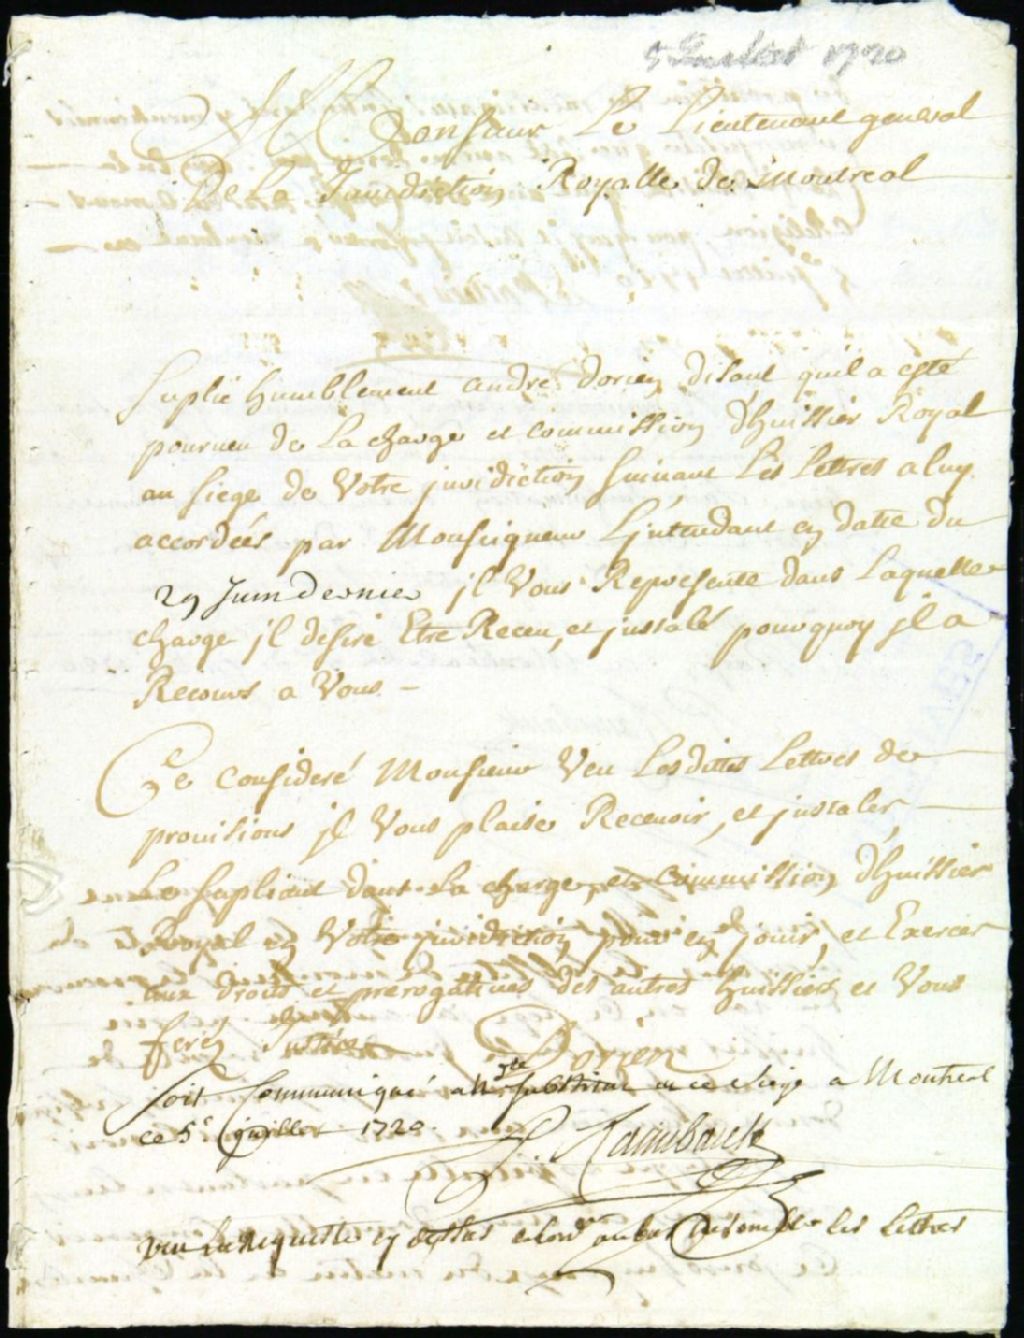 5 Juillet 1720
A Monsieur Le Lieutenant general
De La Jurisdiction Royalle de Montreal
Suplie humblement andre dorien disant quil a esté
pourveu de La charge et commission d'huissier Royal
au siege de Votre jurisdiction suivant Les Lettres a luy
accordées par Monseigneur L'jntendant en datte du
29 Juin dernier jl Vous Represente dans Laquelle
charge jl desire Etre Receu, et jnstalé pourquoy jl a
Recours a Vous -
Ce consideré Monsieur Veu Lesdittes Lettres de
provisions jl Vous plaise Recevoir, et jnstaler
Le supliant dans La charge et commission d'huissier
Royal en Votre jurisdiction pour en jouir, et Exercer
aux droits et prerogatives des autres huissiers et Vous
ferez Justice
Dorien
Soit Communiqué a substitut en ce siege a Montreal
ce 5e juillet 1720
Raimbault
veu la Requeste cy dessus les Lettres